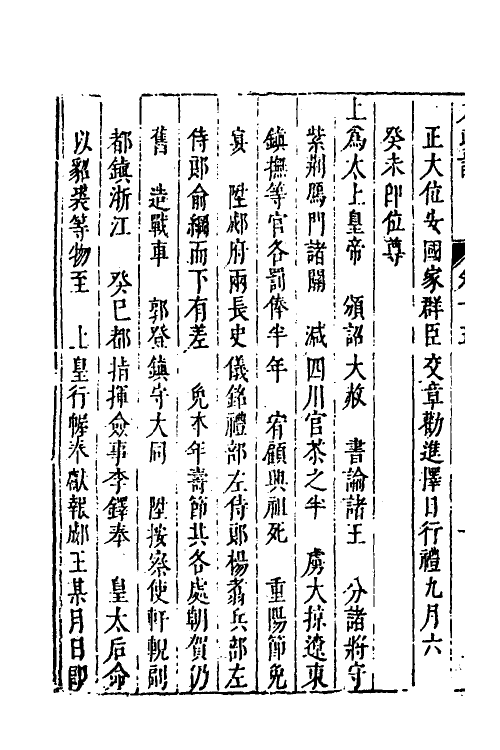 正大位安國家群臣交章勸進擇日行禮九月六
癸未卽位尊
上爲太上皇帝 頒詔大赦 書諭諸王 分諸將守
紫荆鴈門諸關 減四川官茶之半 虜大掠遼東
鎮撫等官各罰俸半年 宥顧興祖死 重陽節免
宴 陞郕府兩長史儀銘禮部左侍郎楊翥兵部左
侍郎俞綱而下有差 免本年壽節其各處朝賀仍
舊 造戰車 郭登鎮守大同 陞按察使軒輗副
都鎮浙江 癸巳都指揮僉事李鐸奉 皇太后命
以貂裘等物至 上皇行幄奉獻報郕王某月日卽